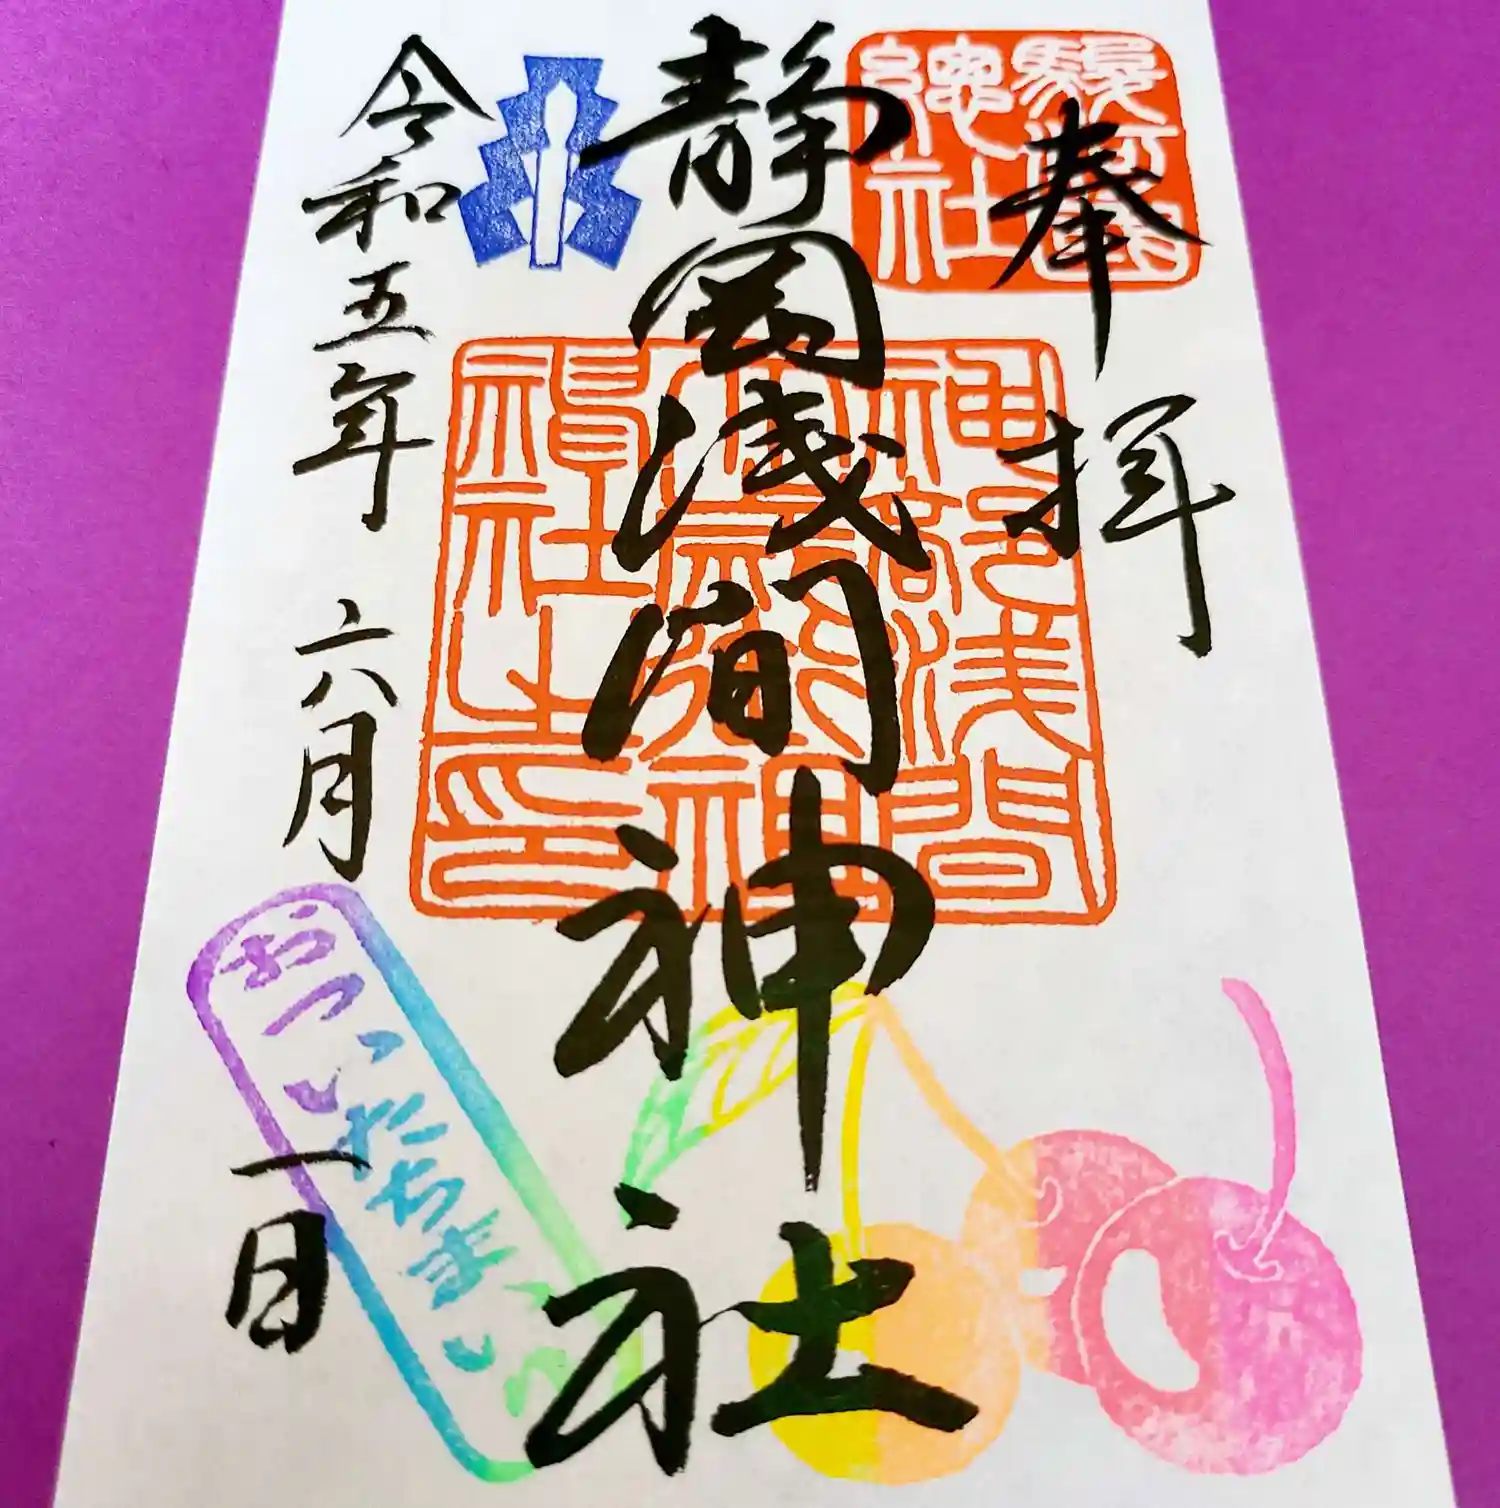 奉拝
駿河國
總社
静岡浅間神社
神部浅間
社之印
令和五年 六月一日
おついたちまいり